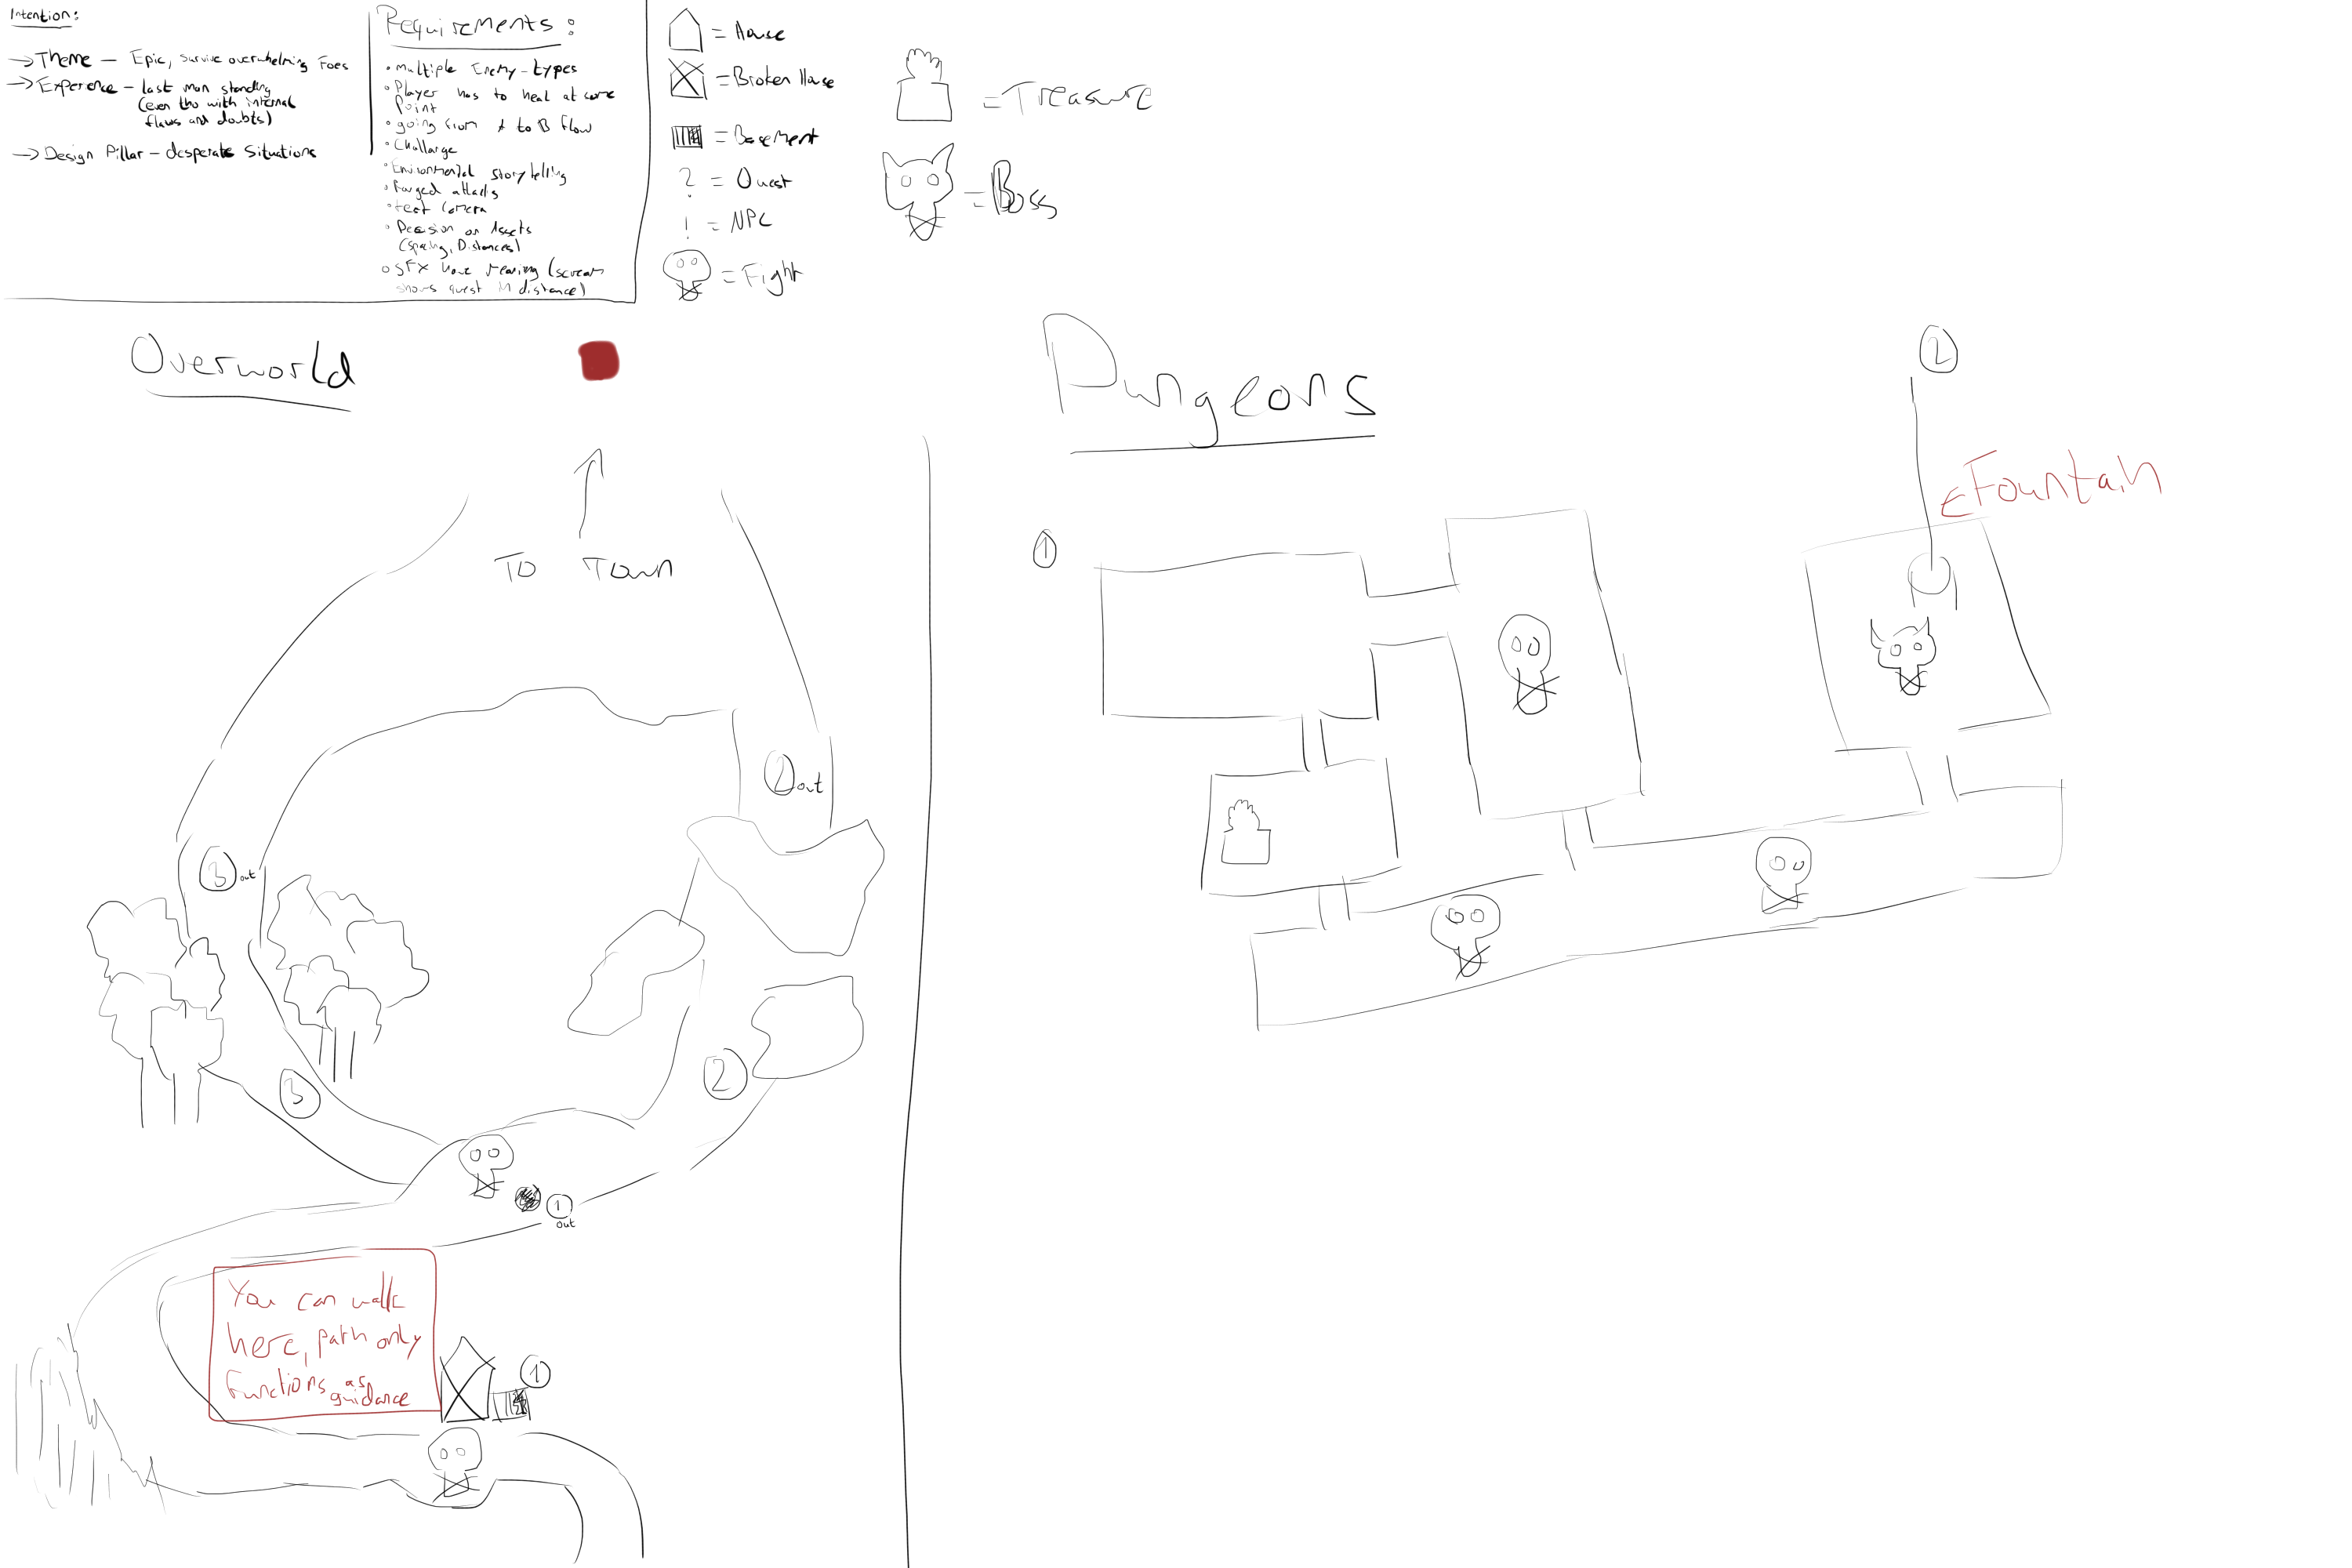 Intention:
→ Theme – Epic, survive overwhelming Foes
→ Experience – last man standing
(even tho with internal
flaws and doubts)
→ Design Pillar – desperate Situations
Requirements:
• Multiple Enemy-types
• Player has to heal at some
Point
• going from A to B flow
• Challange
• Environmental storytelling
• Ranged attacks
• test Camera
• Decision on Assets
(spacing, Distances)
• SFX have meaning (scream
shows quest in distance)
= House
= Broken House
= Basement
? = Quest
! = NPC
= Fight
= Treasure
= Boss
Overworld
To Town
2 out
3 out
3
2
1 out
You can walk
here, path only
functions as
guidance
1
Dungeons
1
2
← Fountain